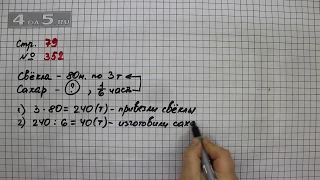 4OOA5.RU
Стр. 79
№ 352
Свёкла - 80 м. по 3 т
Сахар - ?, 1/6 часть
1) 3 · 80 = 240 (т) - привезли свёклы
2) 240 : 6 = 40 (т) - изготовили саха